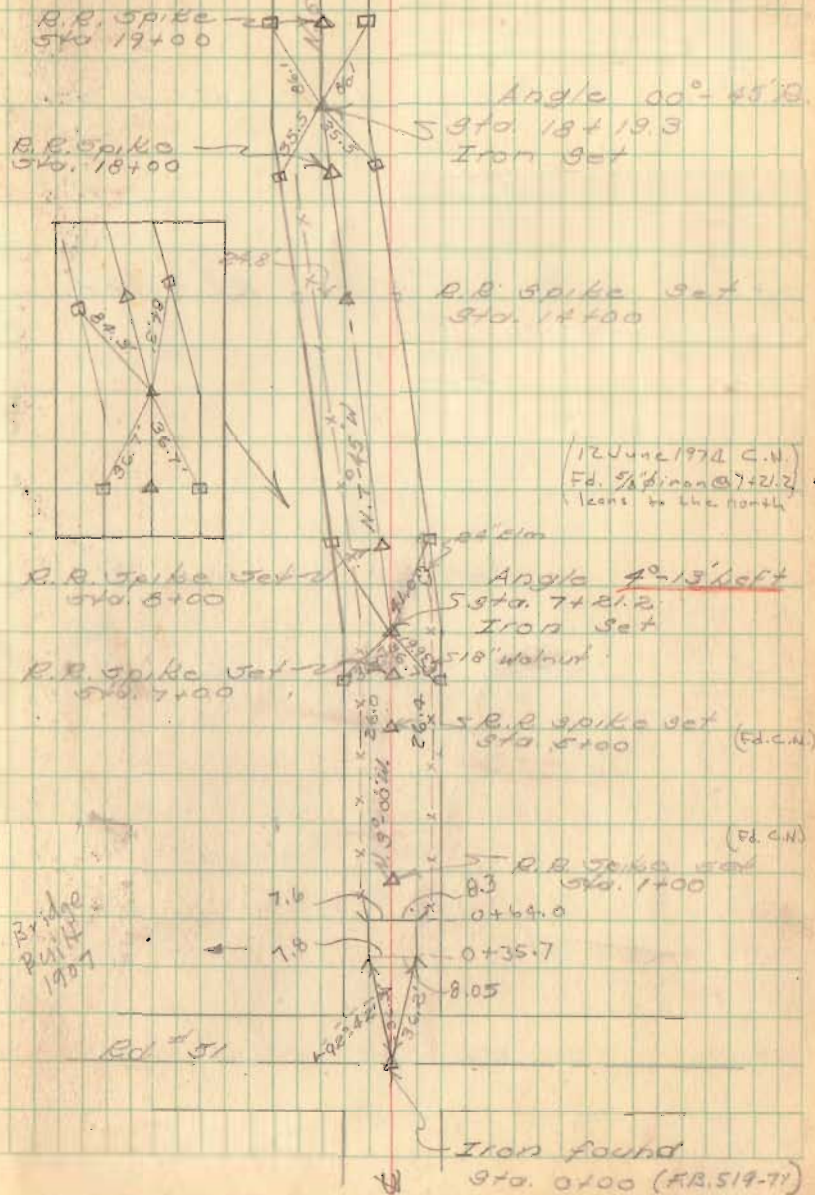 R.R. Spike
Sta. 19+00
Angle 00°-45'R.
Sta. 18+19.3
Iron Set
35.5
35.5
R.R. Spike
Sta. 18+00
24.8'
R.R. Spike Set
Sta. 14+00
84.9'
36.7'
36.7'
(12 June 1974 C.N.)
Fd. 5/8"φ iron @ 7+21.2
leans to the north
R.R. Spike Set
Sta. 8+00
Angle 4°-13' Left
Sta. 7+21.2
Iron Set
18" Walnut
R.R. Spike Set
Sta. 7+00
26.0
26.4
R.R. Spike Set
(Fd. C.N.)
N.3°-00'W.
(Fd. C.N.)
R.R. Spike Set
Sta. 1+00
7.6
8.3
0+64.0
Bridge
Built
1907
7.8
0+35.7
8.05
36.2'
Rd. #51
Iron found
Sta. 0+00 (F.B. 519-71)